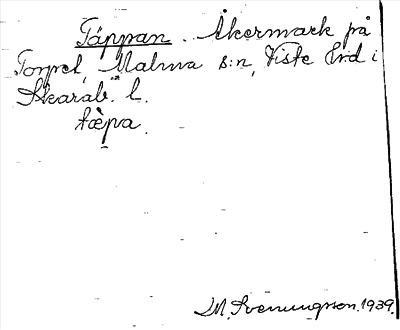 Täppan. Åkermark på
Torpet, Malma s:n, Viste hd i
Skarab. l.
tæ̀pa.
M. Svenungson. 1939.